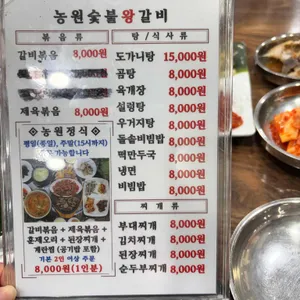 농원숯불왕갈비
볶음류
갈비볶음 8,000원
8,000원
8,000원
제육볶음 8,000원
농원정식
평일(종일), 주말(15시까지)
가능합니다
갈비볶음 + 제육볶음 +
훈제오리 + 된장찌개 +
계란찜 (공기밥 포함)
기본 2인 이상 주문
8,000원(1인분)
탕 / 식사류
도가니탕 15,000원
곰탕 8,000원
육개장 8,000원
설렁탕 8,000원
우거지탕 8,000원
돌솥비빔밥 8,000원
떡만두국 8,000원
냉면 8,000원
비빔밥 8,000원
찌개류
부대찌개 8,000원
김치찌개 8,000원
된장찌개 8,000원
순두부찌개 8,000원